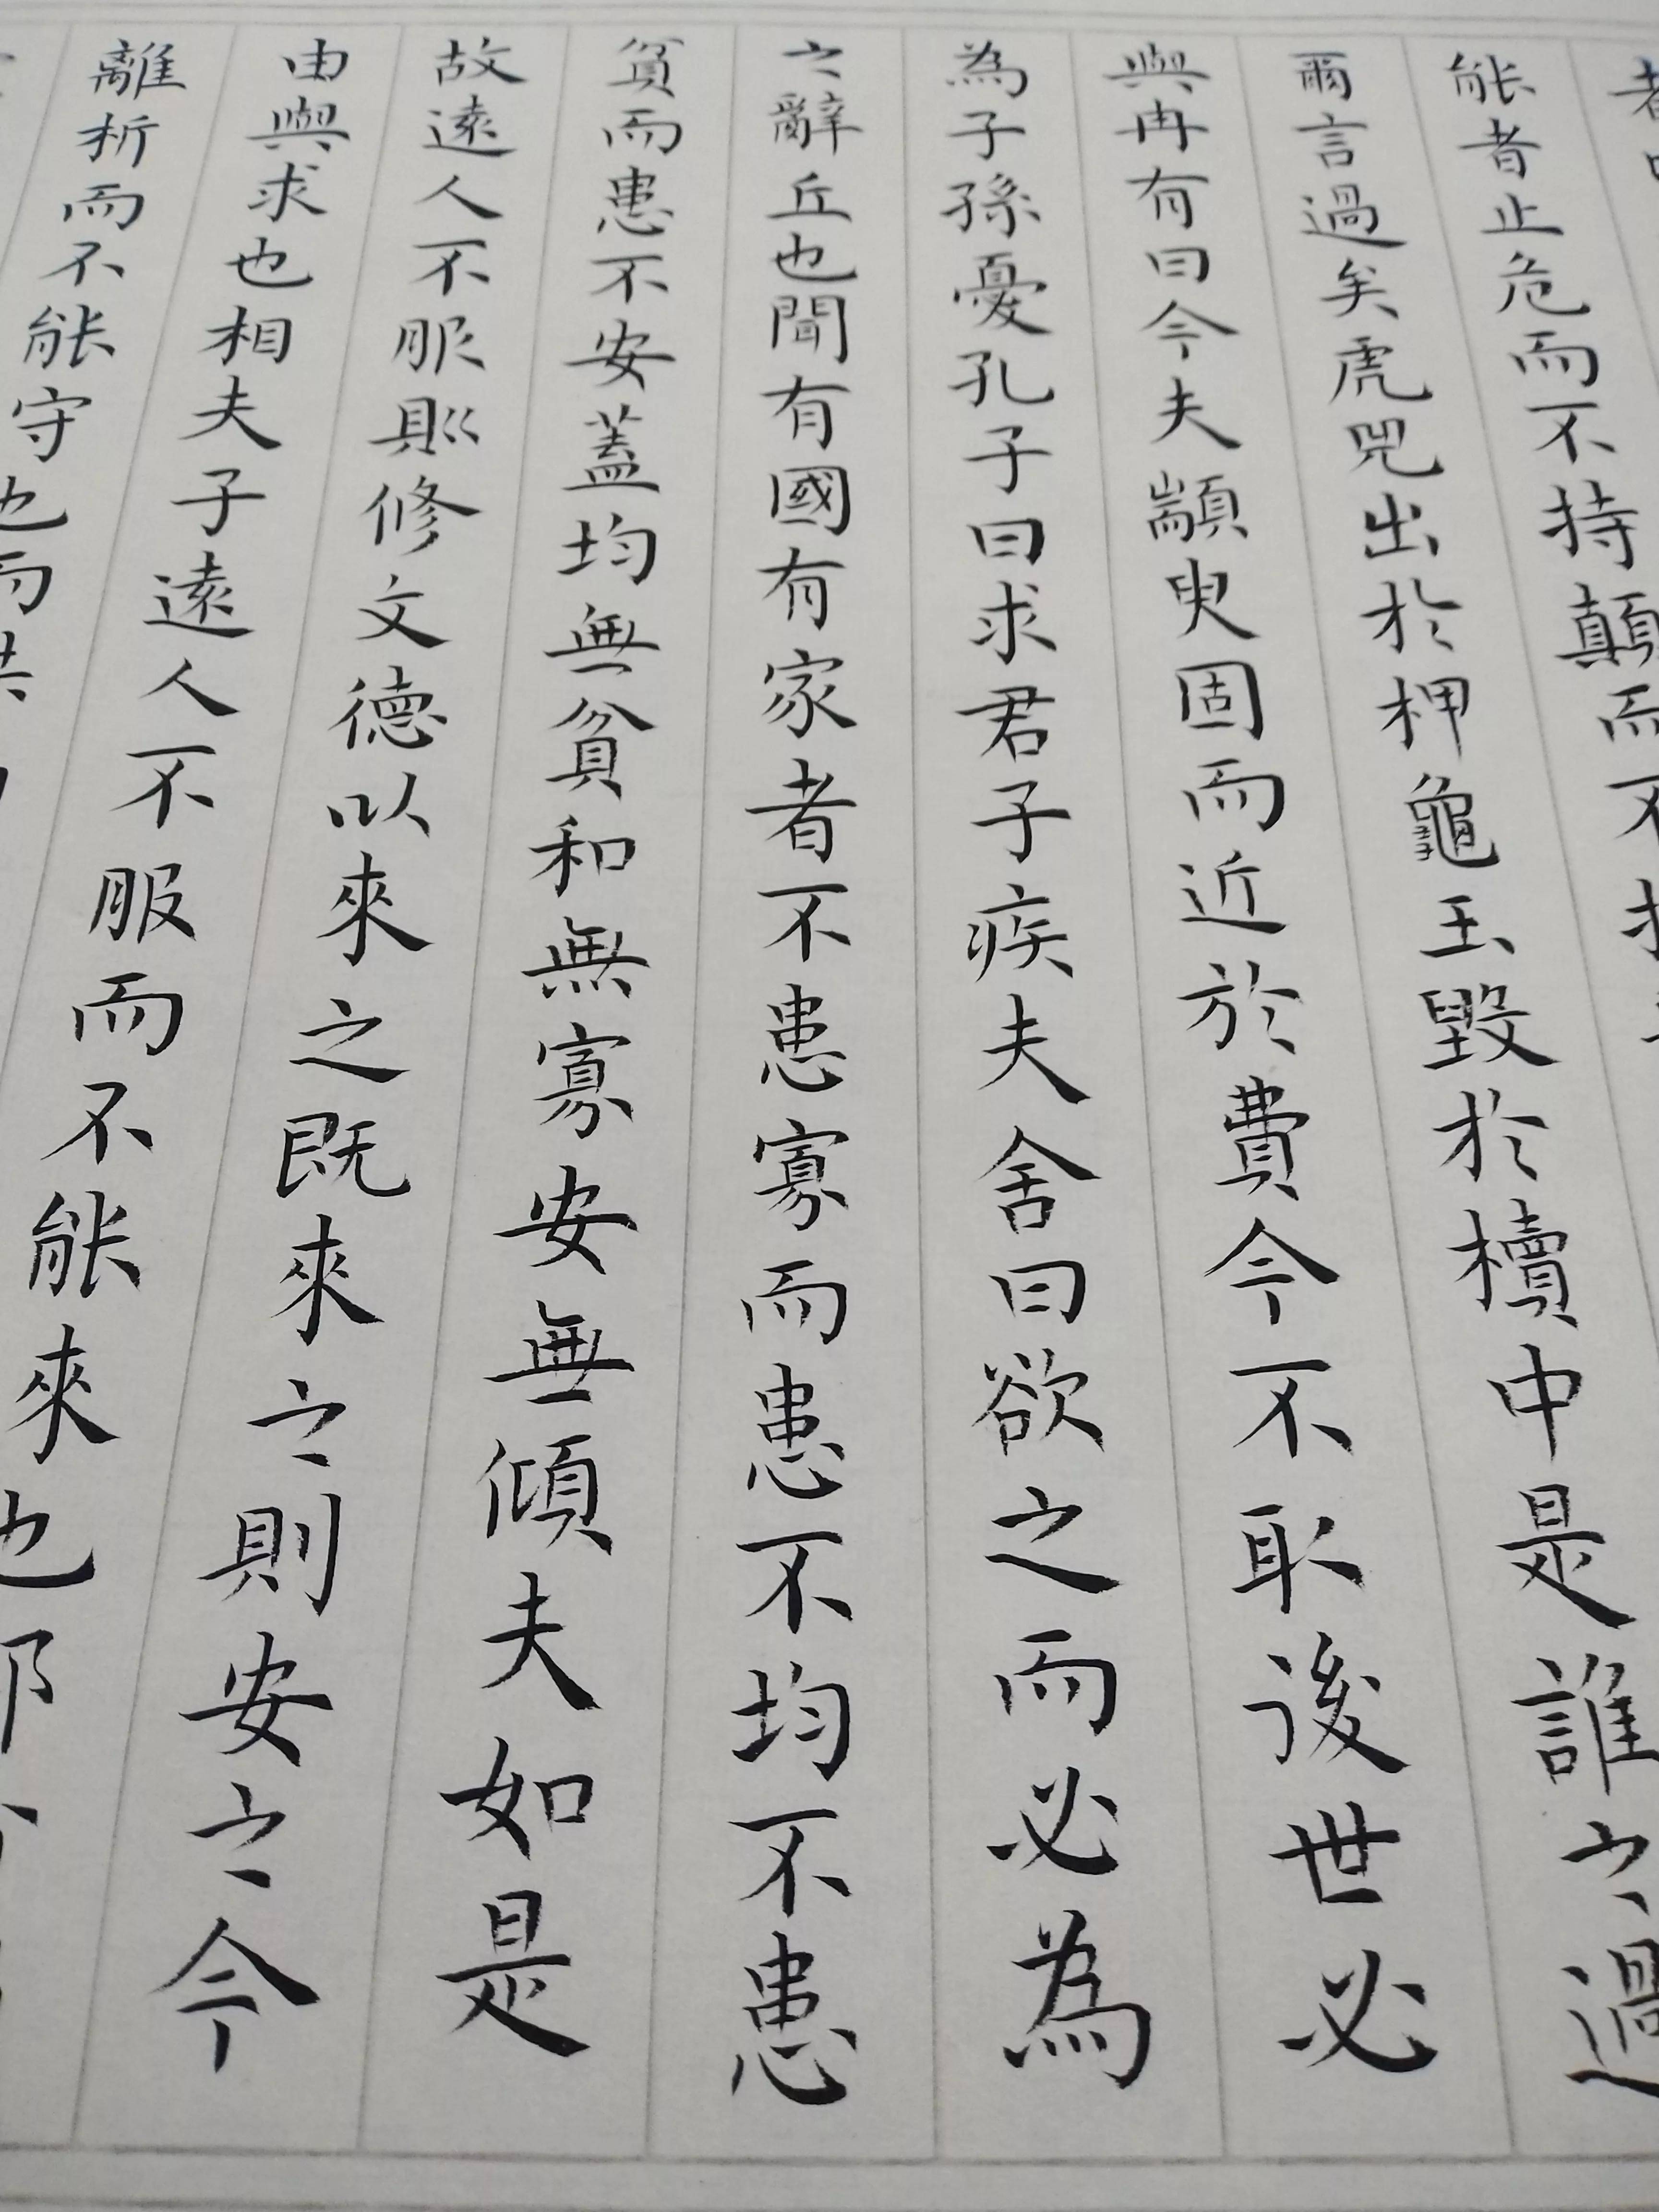 而不持顛而不
能者止危而不持顛而不
爾言過矣虎兕出於柙龜玉毀於櫝中是誰之過
與冉有曰今夫顓臾固而近於費今不取後世必
為子孫憂孔子曰求君子疾夫舍曰欲之而必為
之辭丘也聞有國有家者不患寡而患不均不患
貧而患不安蓋均無貧和無寡安無傾夫如是
故遠人不服則修文德以來之既來之則安之今
由與求也相夫子遠人不服而不能來也邦
離析而不能守也而